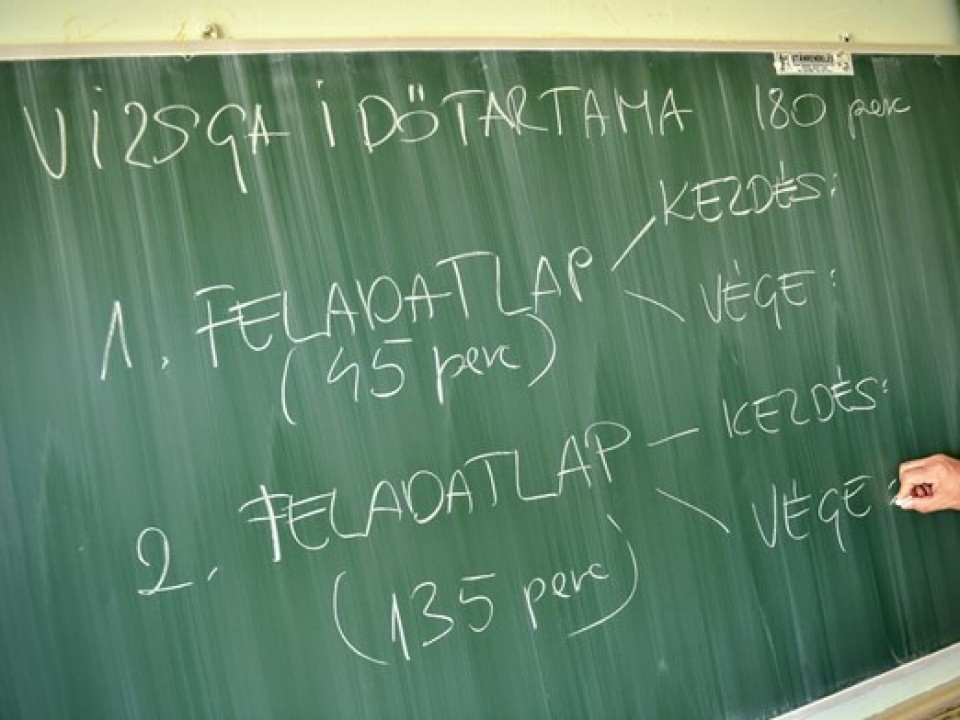 VIZSGA IDŐTARTAMA 180 perc
1. FELADATLAP
KEZDÉS:
VÉGE:
(45 perc)
2. FELADATLAP
KEZDÉS:
VÉGE:
(135 perc)